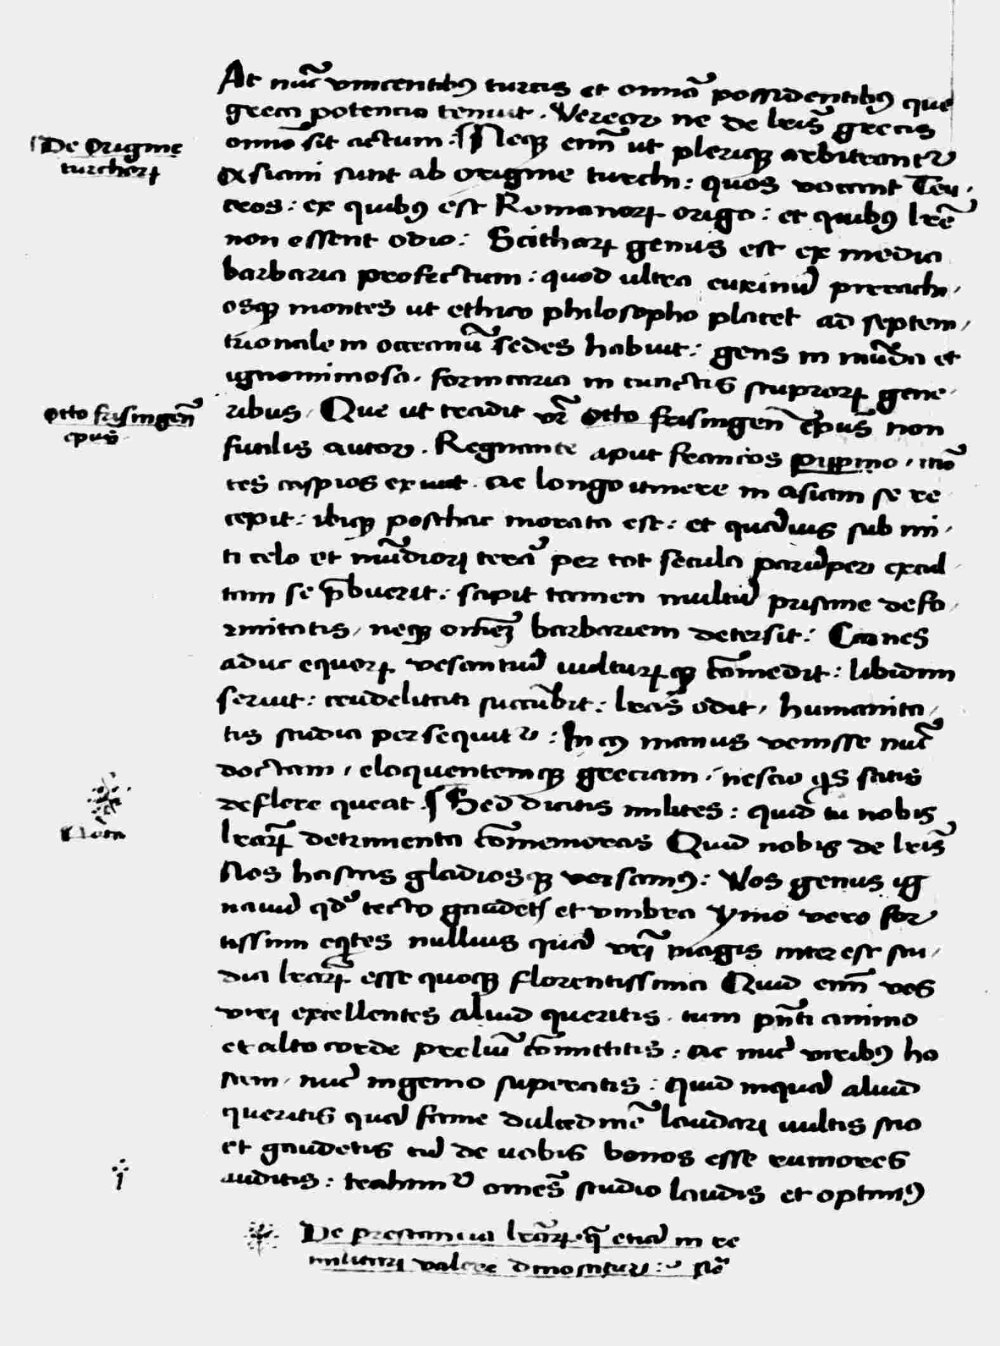 At nu͞c vincentibꝯ turcis et omnia͞ possidentibꝯ que
greci potencia tenuit. Vereor ne de lris͞ grecis
De Origine
omnino͞ sit actum. Neqꝫ eni͞m ut pleriqꝫ arbitrantr͛
turchorꝝ
Asiani sunt ab origine turchi: quos vocant Teu-
cros: ex quibꝯ est Romanorꝝ origo: et quibꝯ lre͞
non essent odio: Scitharꝝ genus est ex media
barbaria profectum: quod ultra euxinu͞ pirrachi-
osqꝫ montes ut ethico philosopho placet ad septem-
trionalem oceanu͞ sedes habuit: gens in mu͞da et
ignominiosa. fornicaria in cunctis stuprorꝝ gene-
Otto frisingen͞
epus
ribus. Que ut tradit vr͞ Otto frisingen͞ ep͞us non
futilis autor. Regnante aput francos pippino. mo͞
tes caspios exiuit. ac longo itinere in asiam se re
cepit: ibiqꝫ posthac morata est: et qua͞uis sub mi-
ti celo et mu͞diori terra͞ per tot secula paru͞per exal-
tam se p͞buerit: sapit tamen multu͞ pristine defo-
rmitatis, neqꝫ omne͞ barbariem detersit: Carnes
aduc equorꝝ vesontiu͞ vulturꝝqꝫ co͞medit: libidini
seruit: crudelitati succu͞bit: lras͞ odit, humanita-
tis studia persequitr͛: In cꝯ manus venisse nu͞c
doctam, eloquentemqꝫ greciam, nescio q͞s satis
deflere queat. Sed dicitis milites: quid tu nobis
Nota
lrarꝝ͞ detrimenta co͞memoras Quid nobis de lris͞
Nos hastas gladiosqꝫ versamꝯ: Vos genus ig
nauu͞ qd͛ tecto gaudetis et vmbra ymo vero for
tissimi eq͞tes nullius qua͞ vr͞i magis interest stu-
dia lrarꝝ͞ esse quoqꝫ florentissima Quid eni͞m vos
viri excellentes aliud queritis. tum pn͞ti animo
et alto corde preliu͞ co͞mittitis: ac nu͞c viribꝯ ho
stem, nu͞c ingenio superatis: quid inqua͞ aliud
queritis qua͞ fame dulcedine͞ laudari vultis suo
et gaudetis cu͞ de vobis bonos esse rumores
auditis: trahimr͛ omnes͞ studio laudis et optimꝯ
De prestantia lrarꝝ͞. q͞ etia͞ in re
militari valere dinoscitur: